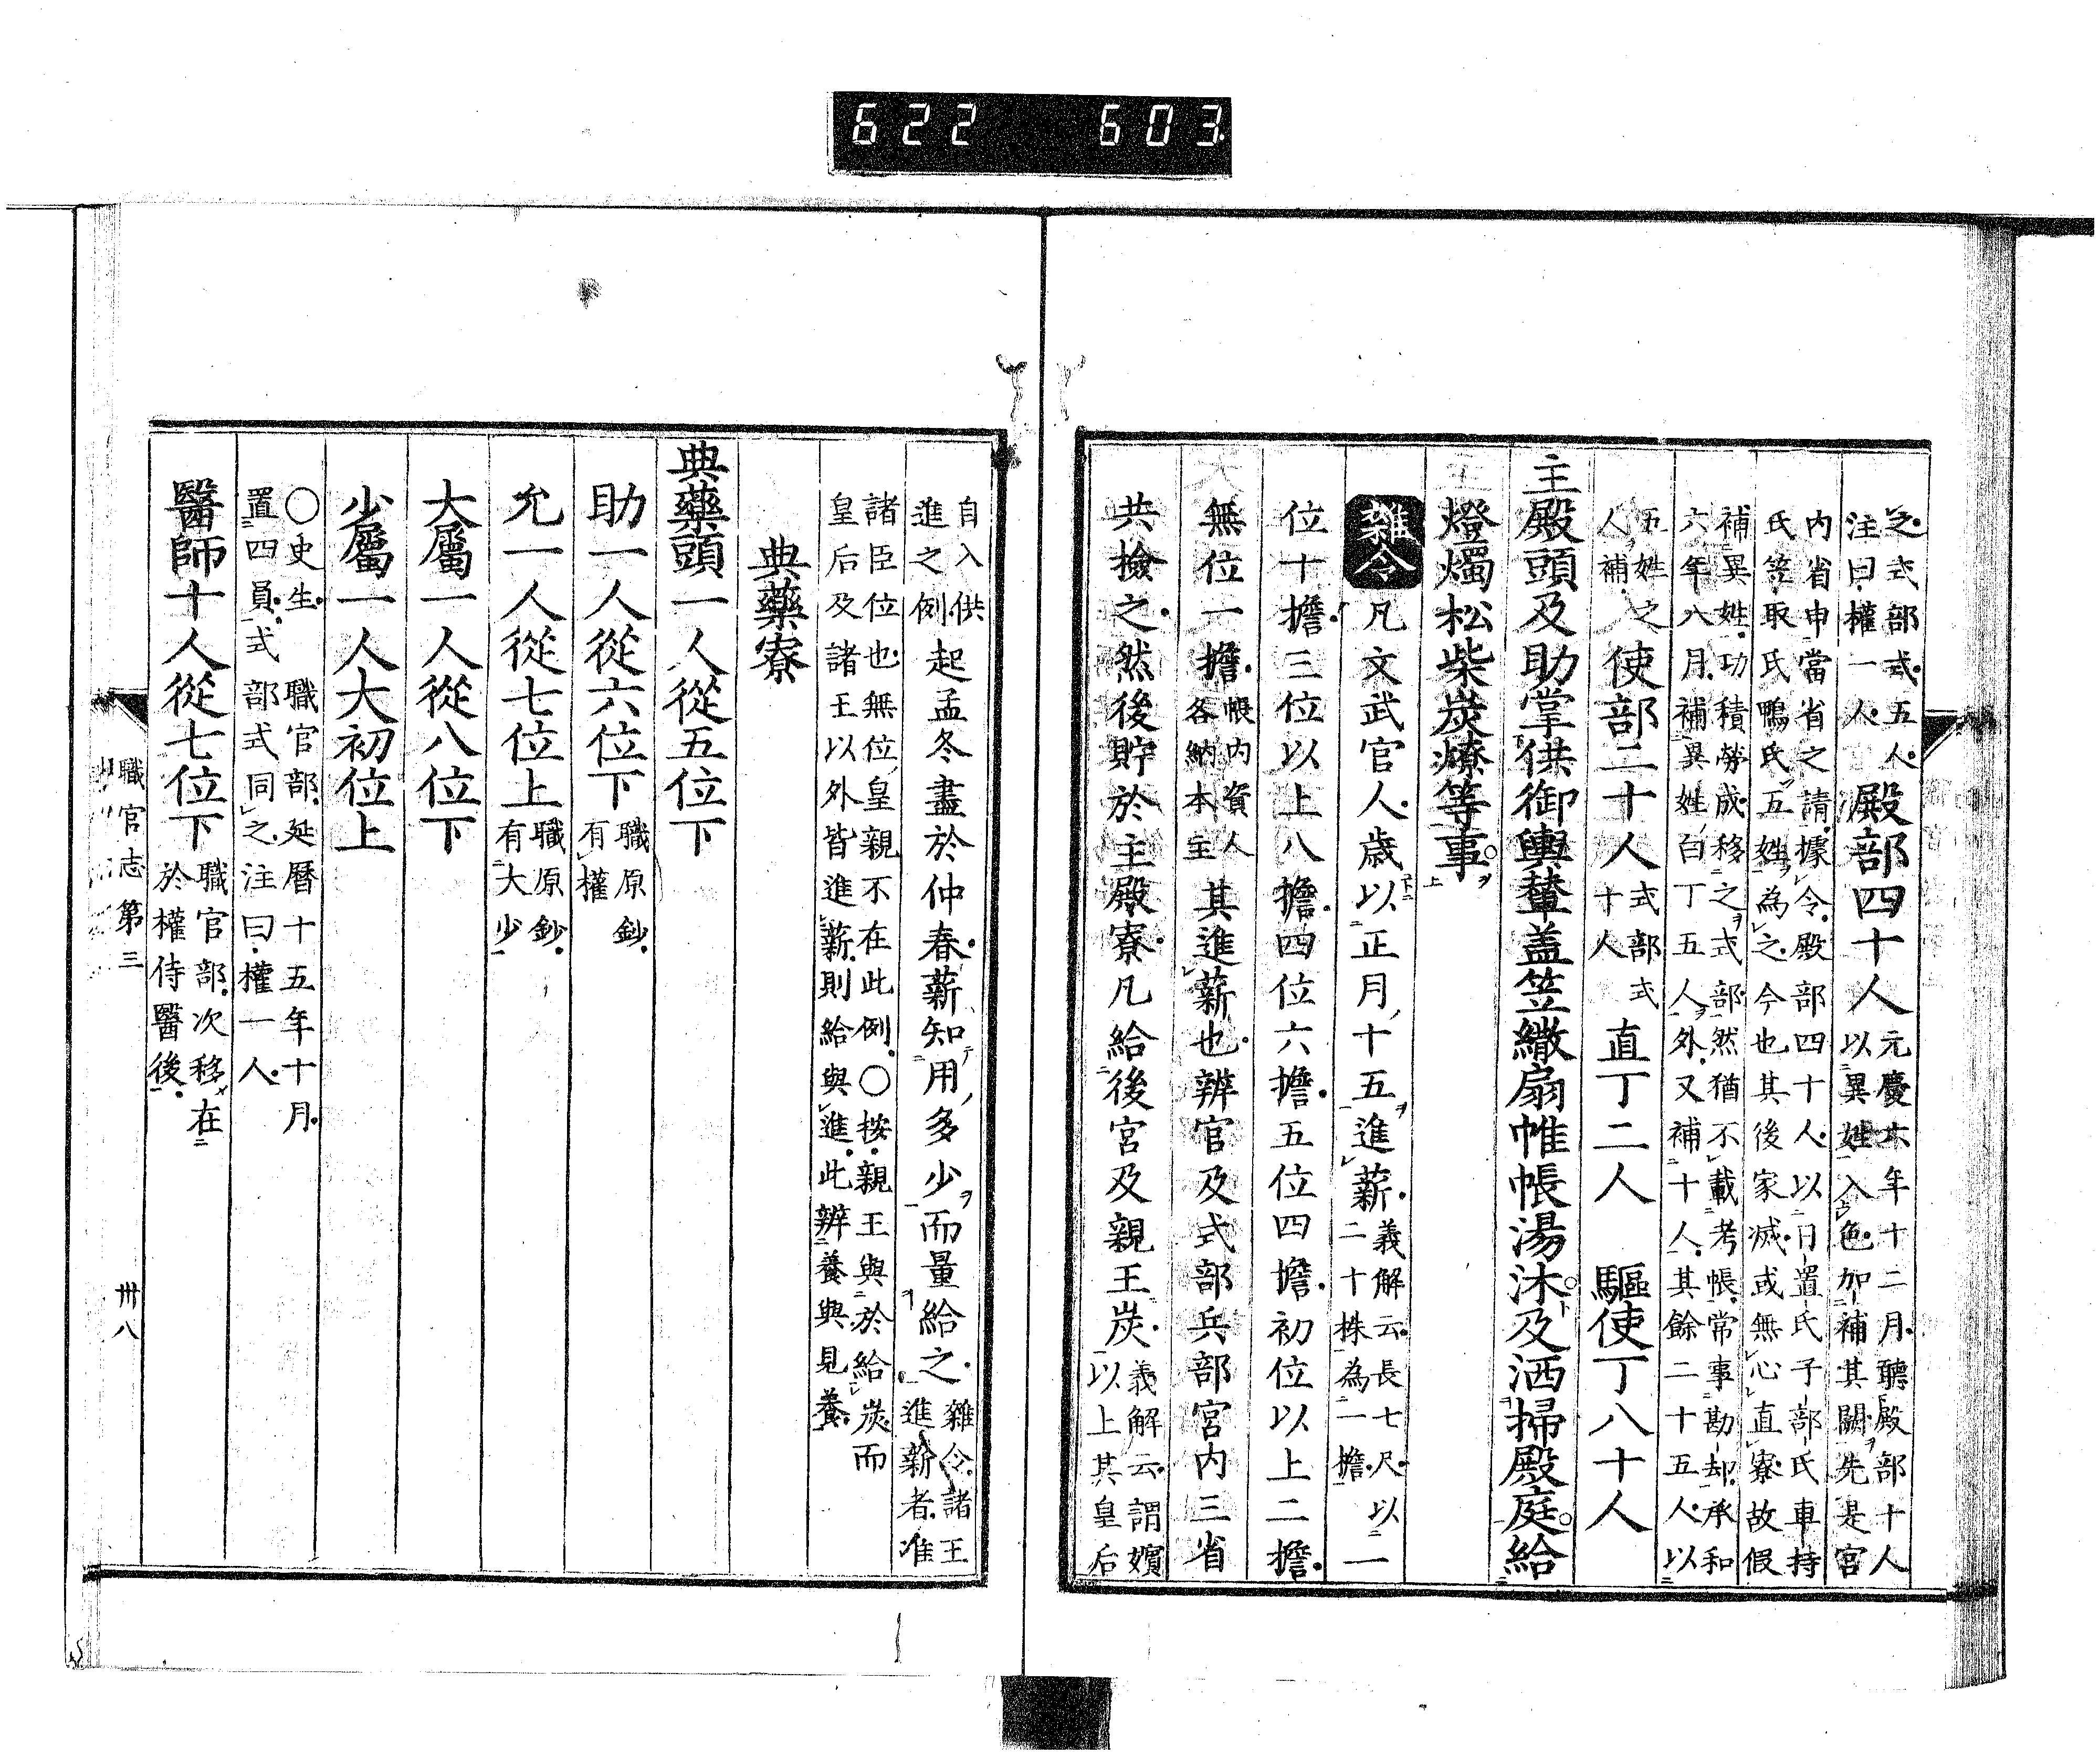 622 603
之式部式五人
注曰權一人
殿部四十人
元慶六年十二月聽殿部十人
以異姓入色加補其闕先是宮
内省申當省之請據令殿部四十人以日置氏子部氏車持
氏笠取氏鴨氏五姓為之今也其後家滅或無心直寮故假
補異姓功積勞成移之式部然猶不載考帳常事勘却承和
六年八月補異姓白丁五人外又補十人其餘二十五人以
五姓之
人補
使部二十人
式部式
十人
直丁二人 驅使丁八十人
主殿頭及助掌供御輿輦盖笠繖扇帷帳湯沐及洒掃殿庭給
燈燭松柴炭燎等事
雜令凡文武官人歲以正月十五進薪
義解云長七尺以
二十株為一擔一
位十擔三位以上八擔四位六擔五位四擔初位以上二擔
無位一擔
帳内資人
各納本主
其進薪也辨官及式部兵部宮内三省
共撿之然後貯於主殿寮凡給後宮及親王炭
義解云謂嬪
以上其皇后
自入供
進之例
起孟冬盡於仲春薪知用多少而量給之
雜令諸王
進薪者准
諸臣位也無位皇親不在此例〇按親王與於給炭而
皇后及諸王以外皆進薪則給與進此辨養與見養
典藥寮
典藥頭一人從五位下
助一人從六位下
職原鈔
有權
允一人從七位上
職原鈔
有大少
大屬一人從八位下
少屬一人大初位上
〇史生 職官部延曆十五年十月
置四員式部式同之注曰權一人
醫師十人從七位下
職官部次移在
於權侍醫後
職官志第三
卅八